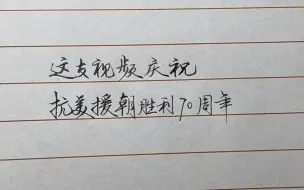 这支视频庆祝
抗美援朝胜利70周年